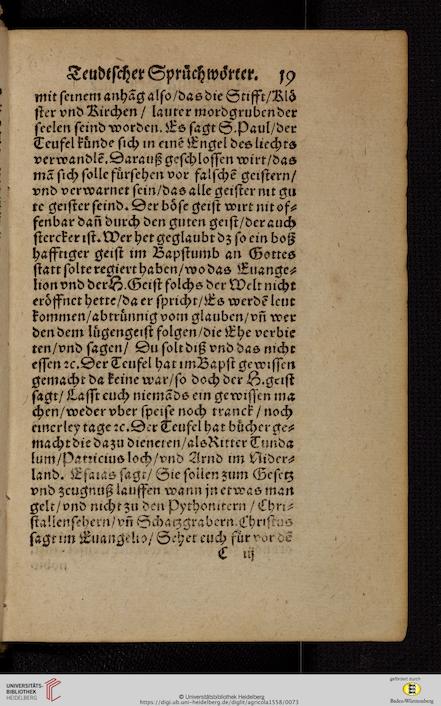 Teudtscher Sprüchwörter. 19
mit seinem anhãg also/das die Stifft/Klö
ster vnd Kirchen / lauter mordgruben der
seelen seind worden. Es sagt S. Paul/der
Teufel künde sich in einẽ Engel des liechts
verwandlẽ. Darauß geschlossen wirt/das
mã sich solle fürsehen vor falschẽ geistern/
vnd verwarnet sein/das alle geister nit gu
te geister seind. Der böse geist wirt nit of-
fenbar dañ durch den guten geist/der auch
stercker ist. Wer het geglaubt dz so ein boß
hafftiger geist im Bapstumb an Gottes
statt solte regiert haben/wo das Euange-
lion vnd der H. Geist solchs der Welt nicht
eröffnet hette/da er spricht/Es werdẽ leut
kommen/abtrünnig vom glauben/vñ wer
den dem lügengeist folgen/die Ehe verbie
ten/vnd sagen/ Du solt diß vnd das nicht
essen ꝛc. Der Teufel hat im Bapst gewissen
gemacht da keine war/so doch der H. geist
sagt/ Lasst euch niemãds ein gewissen ma
chen/weder vber speise noch tranck / noch
einerley tage ꝛc. Der Teufel hat bücher ge-
macht die dazu dieneten/als Ritter Tunda
lum/Patricius loch/vnd Arnd im Nider-
land. Esaias sagt/ Sie sollen zum Gesetz
vnd zeugnuß lauffen wann jn etwas man
gelt/vnd nicht zu den Pythonitern / Chri-
stallensehern/vñ Schatzgrabern. Christus
sagt im Euangelio/ Sehet euch für vor dẽ
C iij
UNIVERSITÄTS-
BIBLIOTHEK
HEIDELBERG
© Universitätsbibliothek Heidelberg
https://digi.ub.uni-heidelberg.de/diglit/agricola1558/0073
gefördert durch
Baden-Württemberg